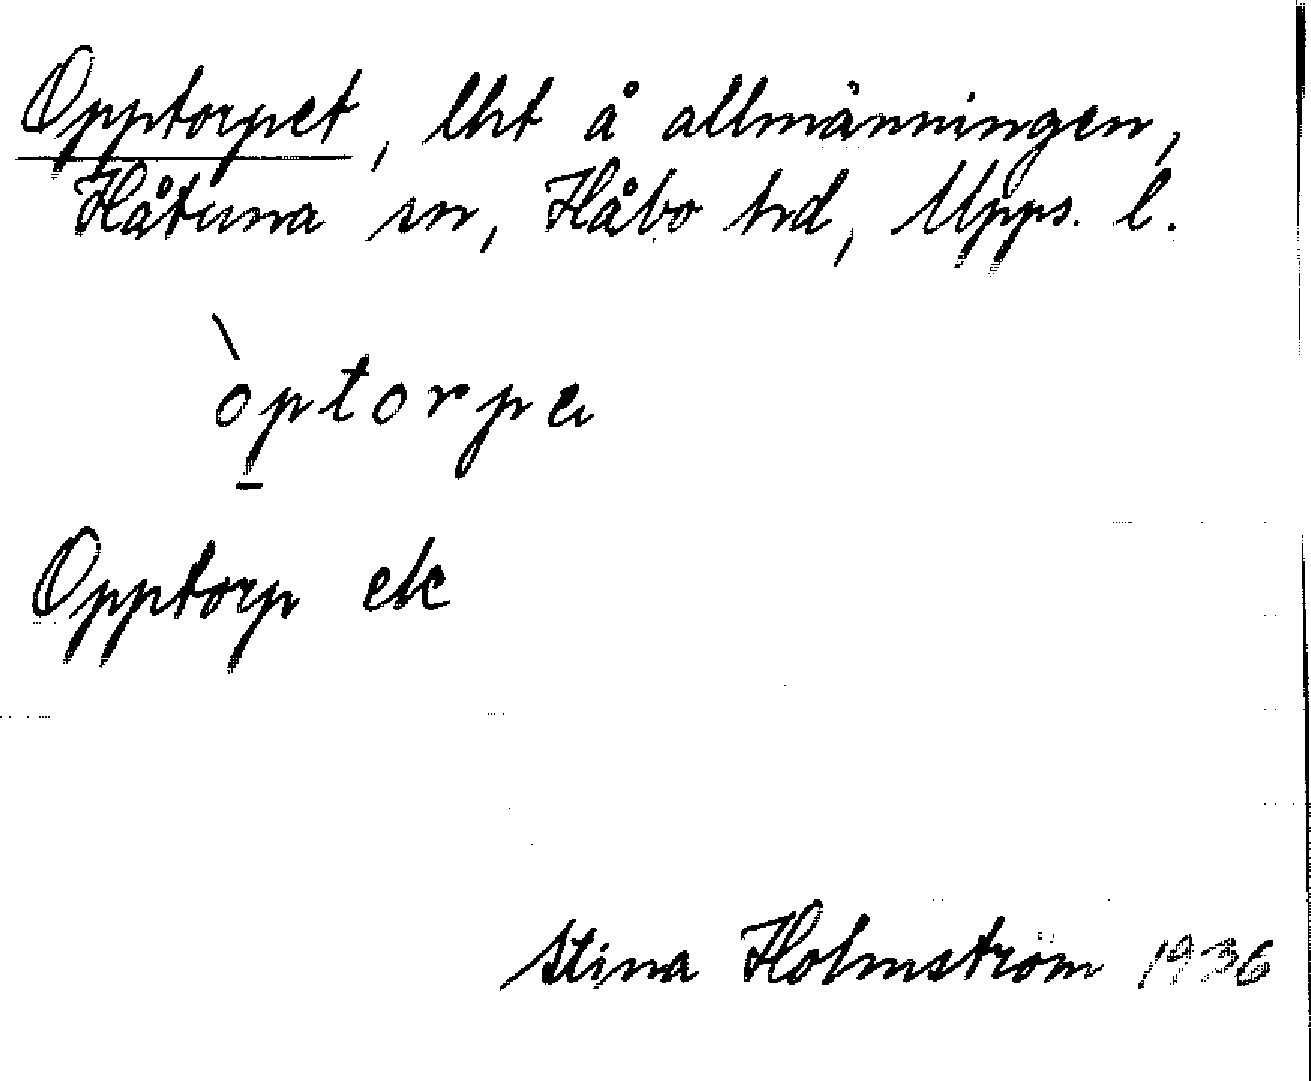 Opptorpet, lht å allmänningen,
Håtuna sn, Håbo hd, Upps. l.
òptorpe
Opptorp ek
Stina Holmström 1936